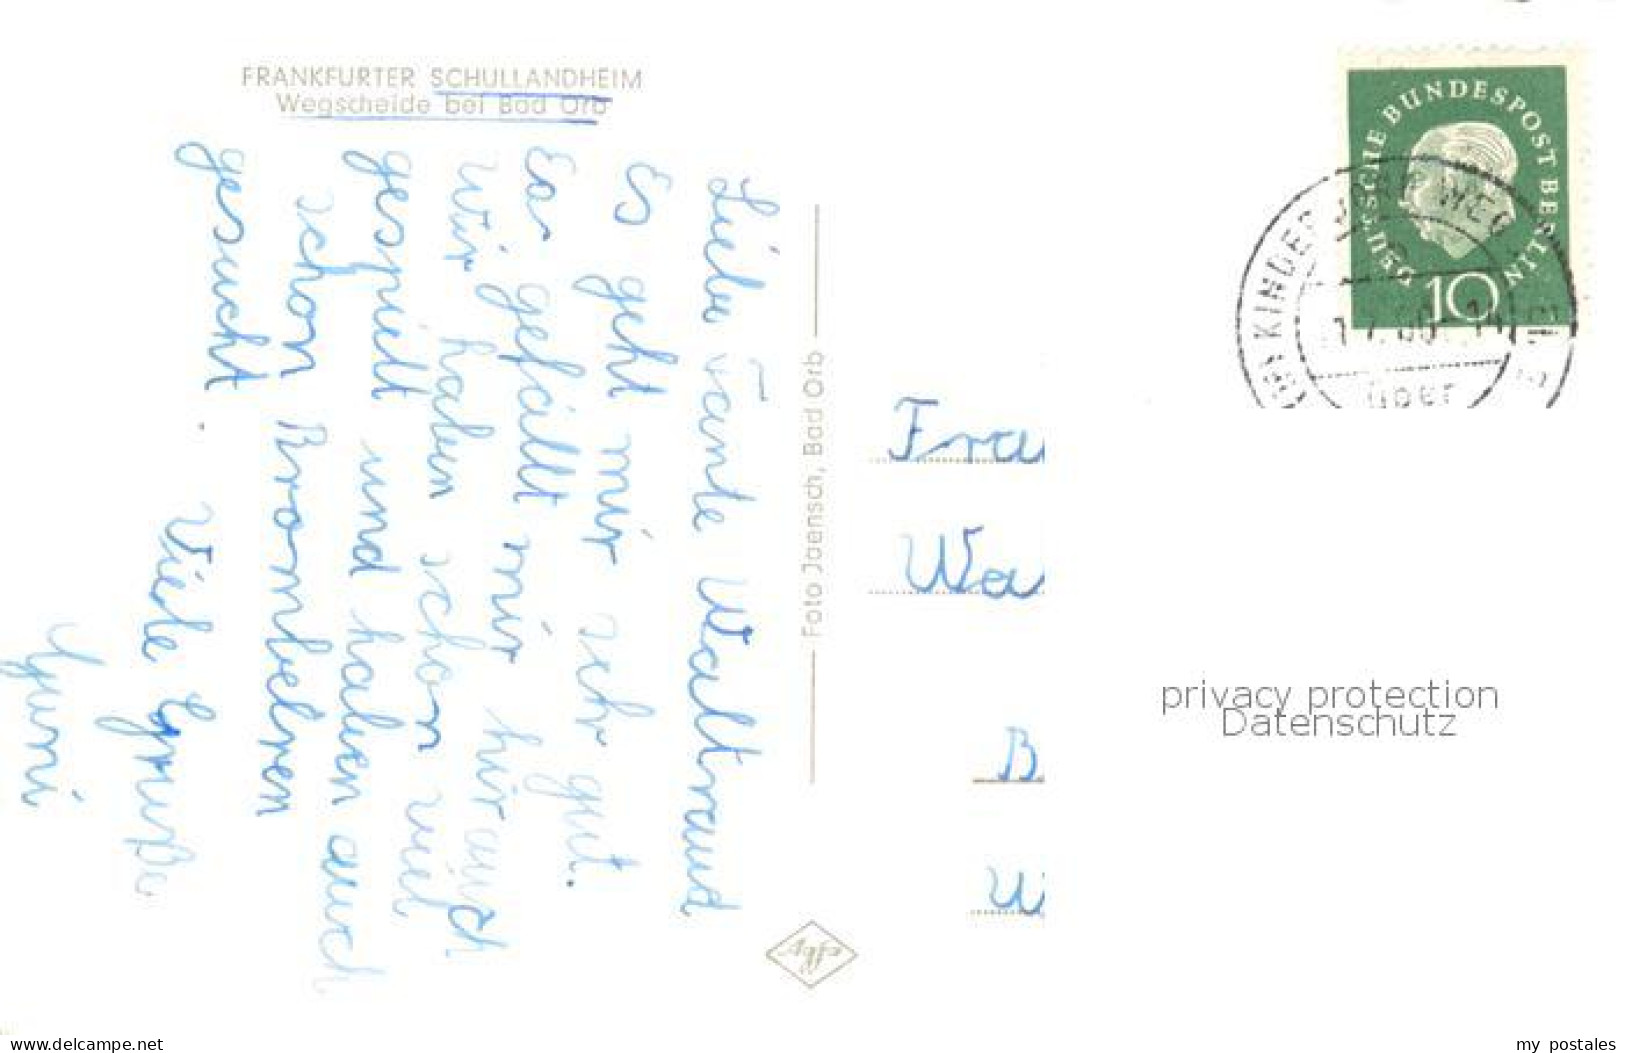 FRANKFURTER SCHULLANDHEIM
Wegscheide bei Bad Orb
Liebe Tante Waltraud
Es geht mir sehr gut.
Es gefällt mir hir auch
wir haben schon viel
gespielt und haben auch
schon Brombeeren
gesucht.
Viele Grüße
Foto Jaensch, Bad Orb
Agfa
DEUTSCHE BUNDESPOST BERLIN
10
KINDER
über
Frau
Wa
B
W
privacy protection
Datenschutz
www.delcampe.net
my postales